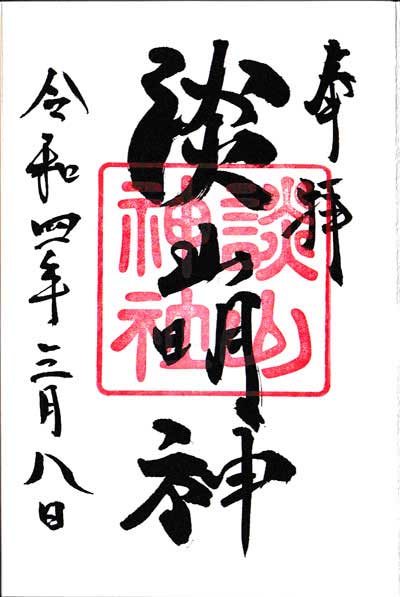 奉拝
談山神社
淡山明神
令和四年三月八日